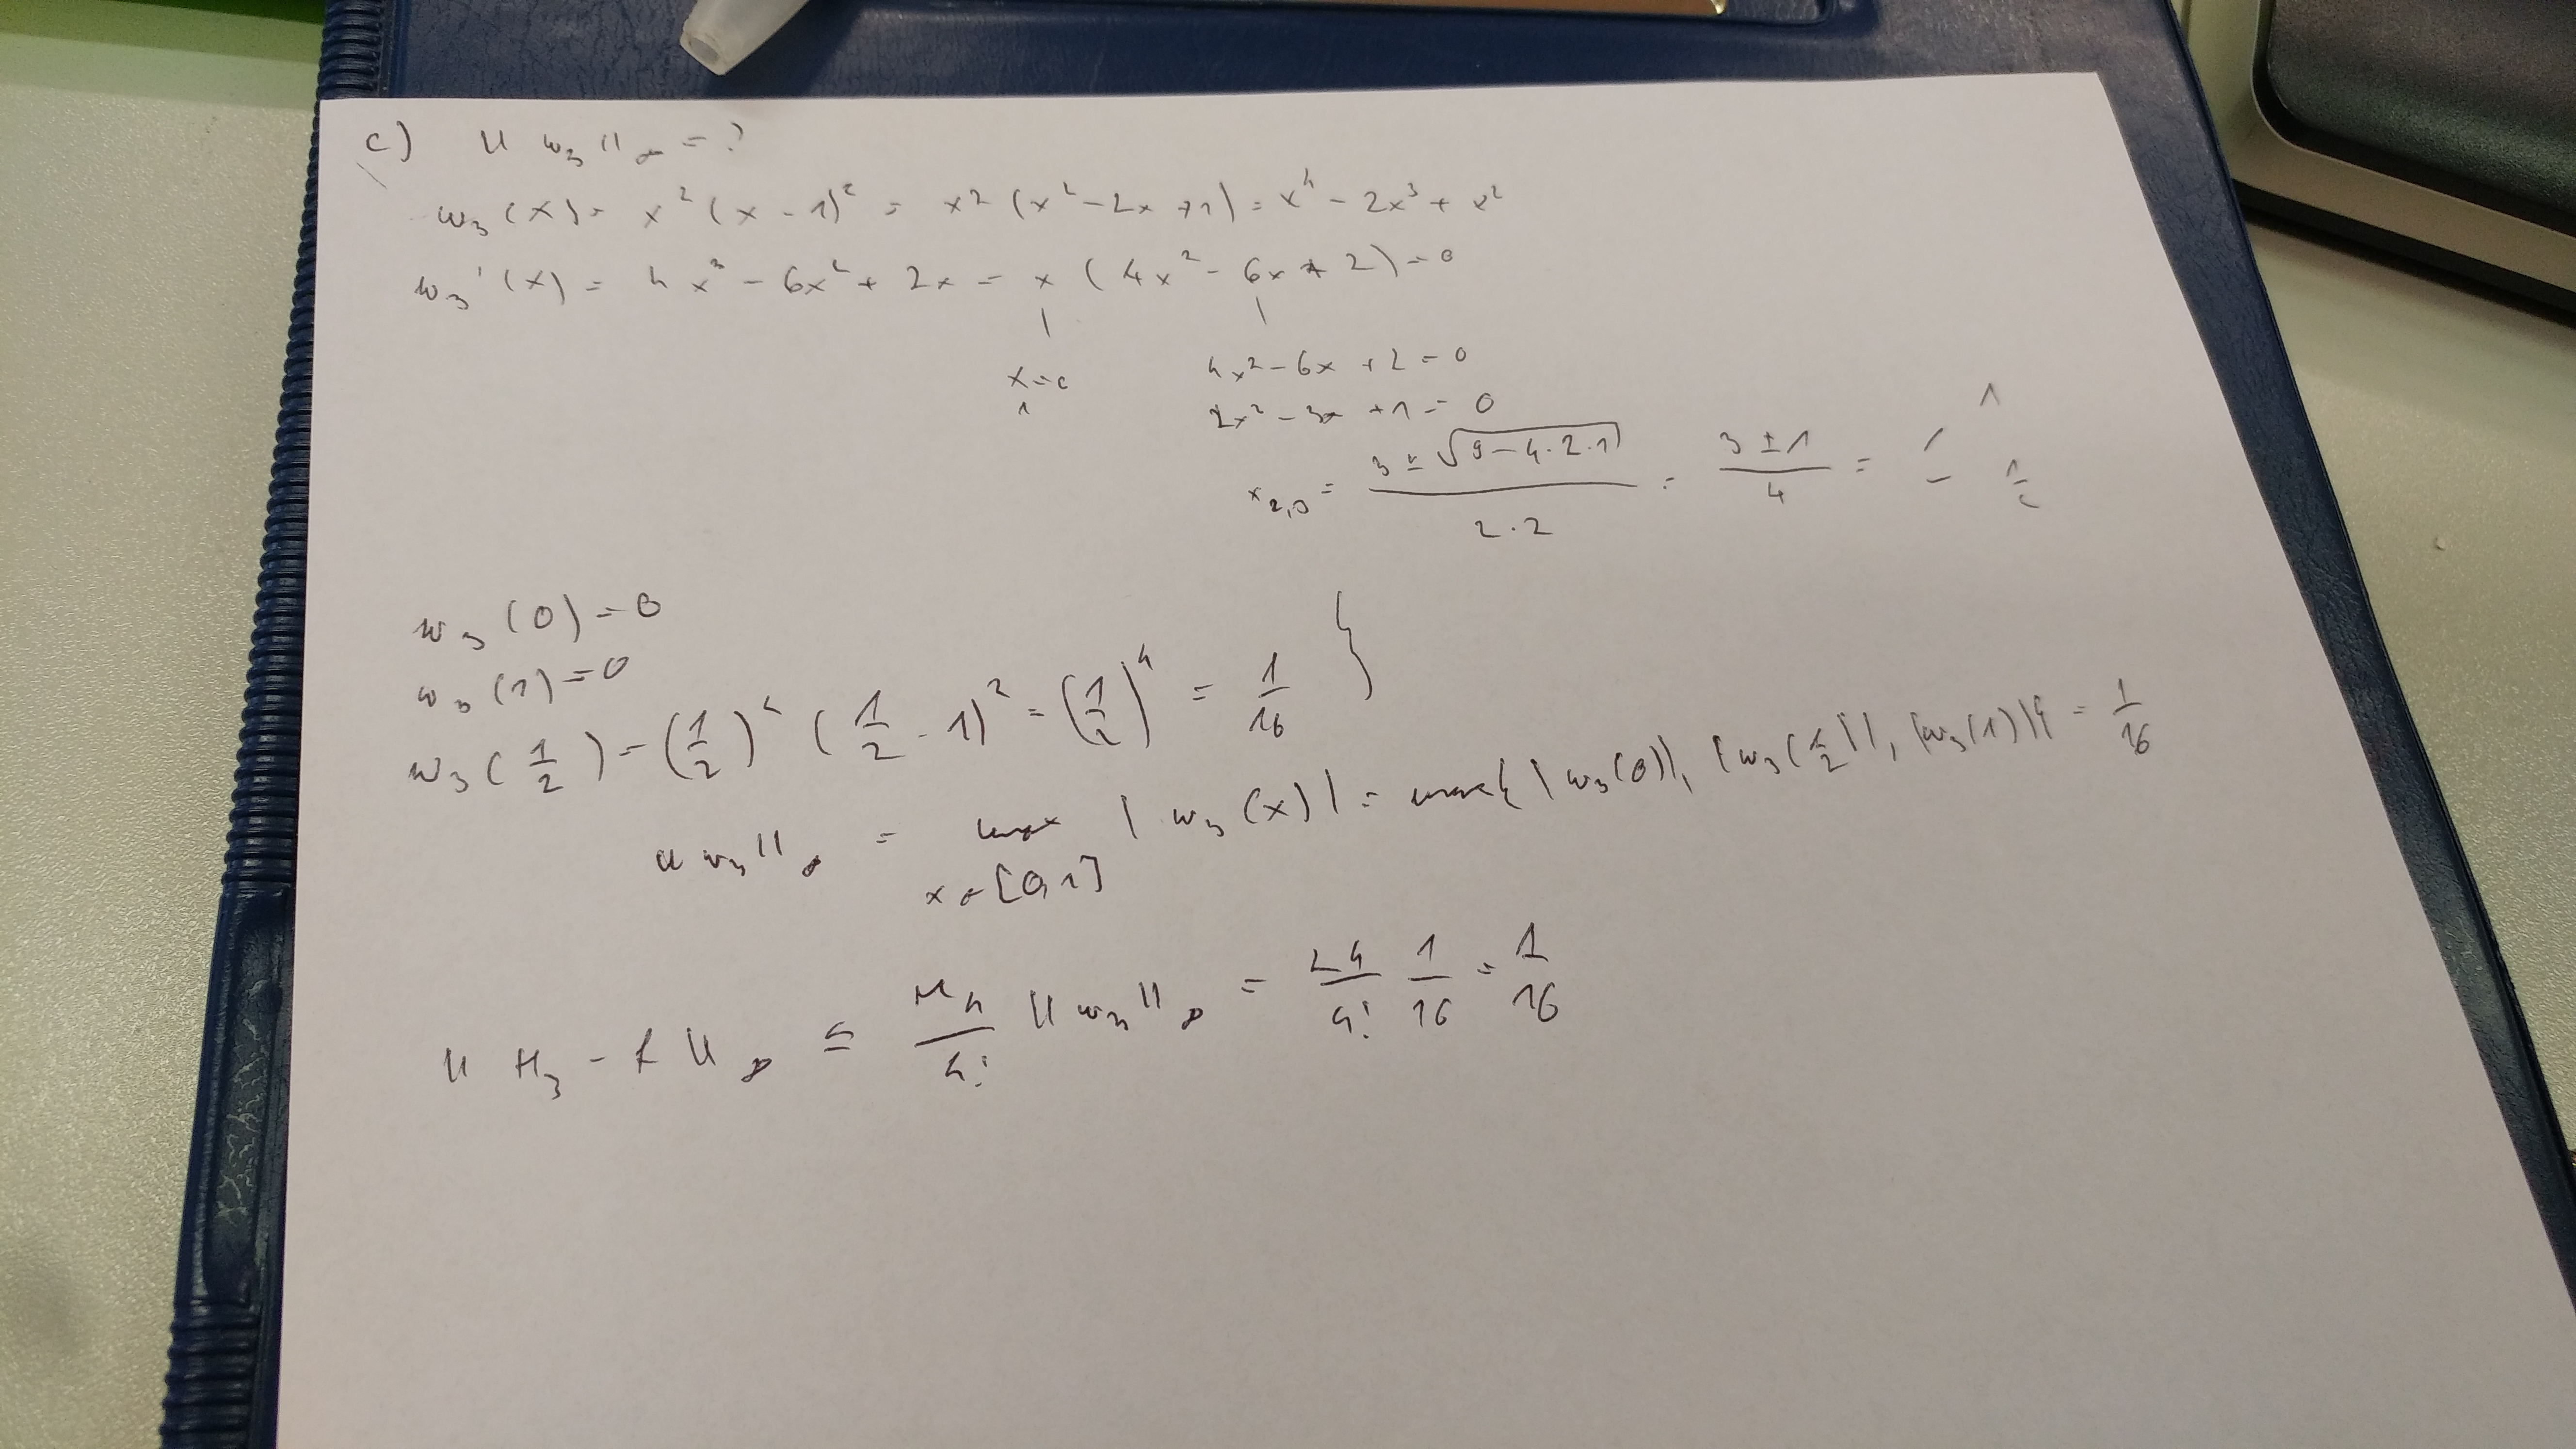 c) ‖ w₃ ‖∞ = ?
w₃(x) = x²(x - 1)² = x²(x² - 2x + 1) = x⁴ - 2x³ + x²
w₃'(x) = 4x³ - 6x² + 2x = x(4x² - 6x + 2) = 0
x₁ = 0 4x² - 6x + 2 = 0
2x² - 3x + 1 = 0
x₂,₃ = (3 ± √(9 - 4·2·1))/(2·2) = (3 ± 1)/4 = 1, 1/2
w₃(0) = 0
w₃(1) = 0
w₃(1/2) = (1/2)² (1/2 - 1)² = (1/2)⁴ = 1/16 }
‖w₃‖∞ = max x∈[0,1] |w₃(x)| = max{|w₃(0)|, |w₃(1/2)|, |w₃(1)|} = 1/16
‖H₃ - f‖∞ ≤ M₄/4! ‖w₃‖∞ = 24/4! 1/16 = 1/16